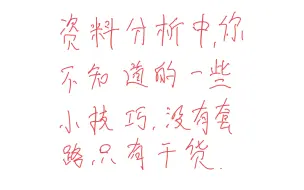 资料分析中,你
不知道的一些
小技巧,没有套
路,只有干货.